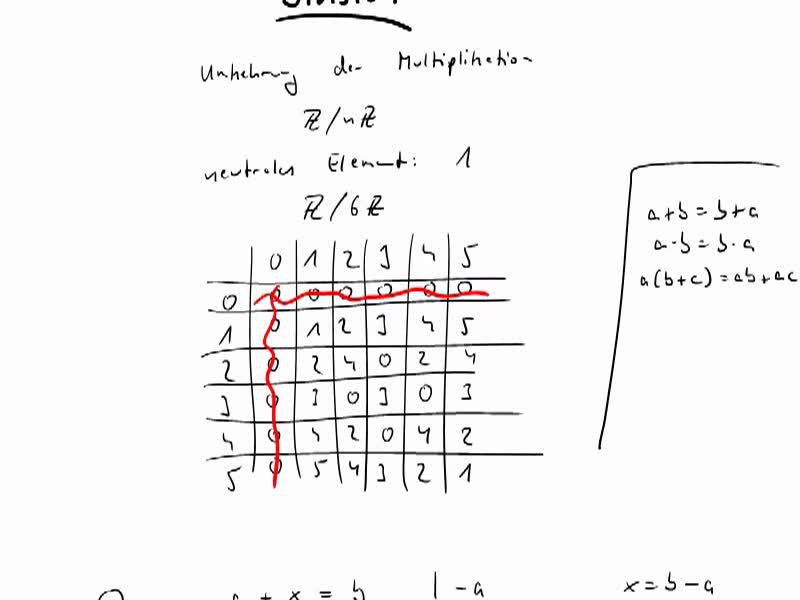 Division
Umkehrung der Multiplikation
ℤ/nℤ
neutrales Element: 1
ℤ/6ℤ
0 1 2 3 4 5
0 0 0 0 0 0 0
1 0 1 2 3 4 5
2 0 2 4 0 2 4
3 0 3 0 3 0 3
4 0 4 2 0 4 2
5 0 5 4 3 2 1
a+b=b+a
a·b=b·a
a(b+c)=ab+ac
a + x = b | -a x = b - a